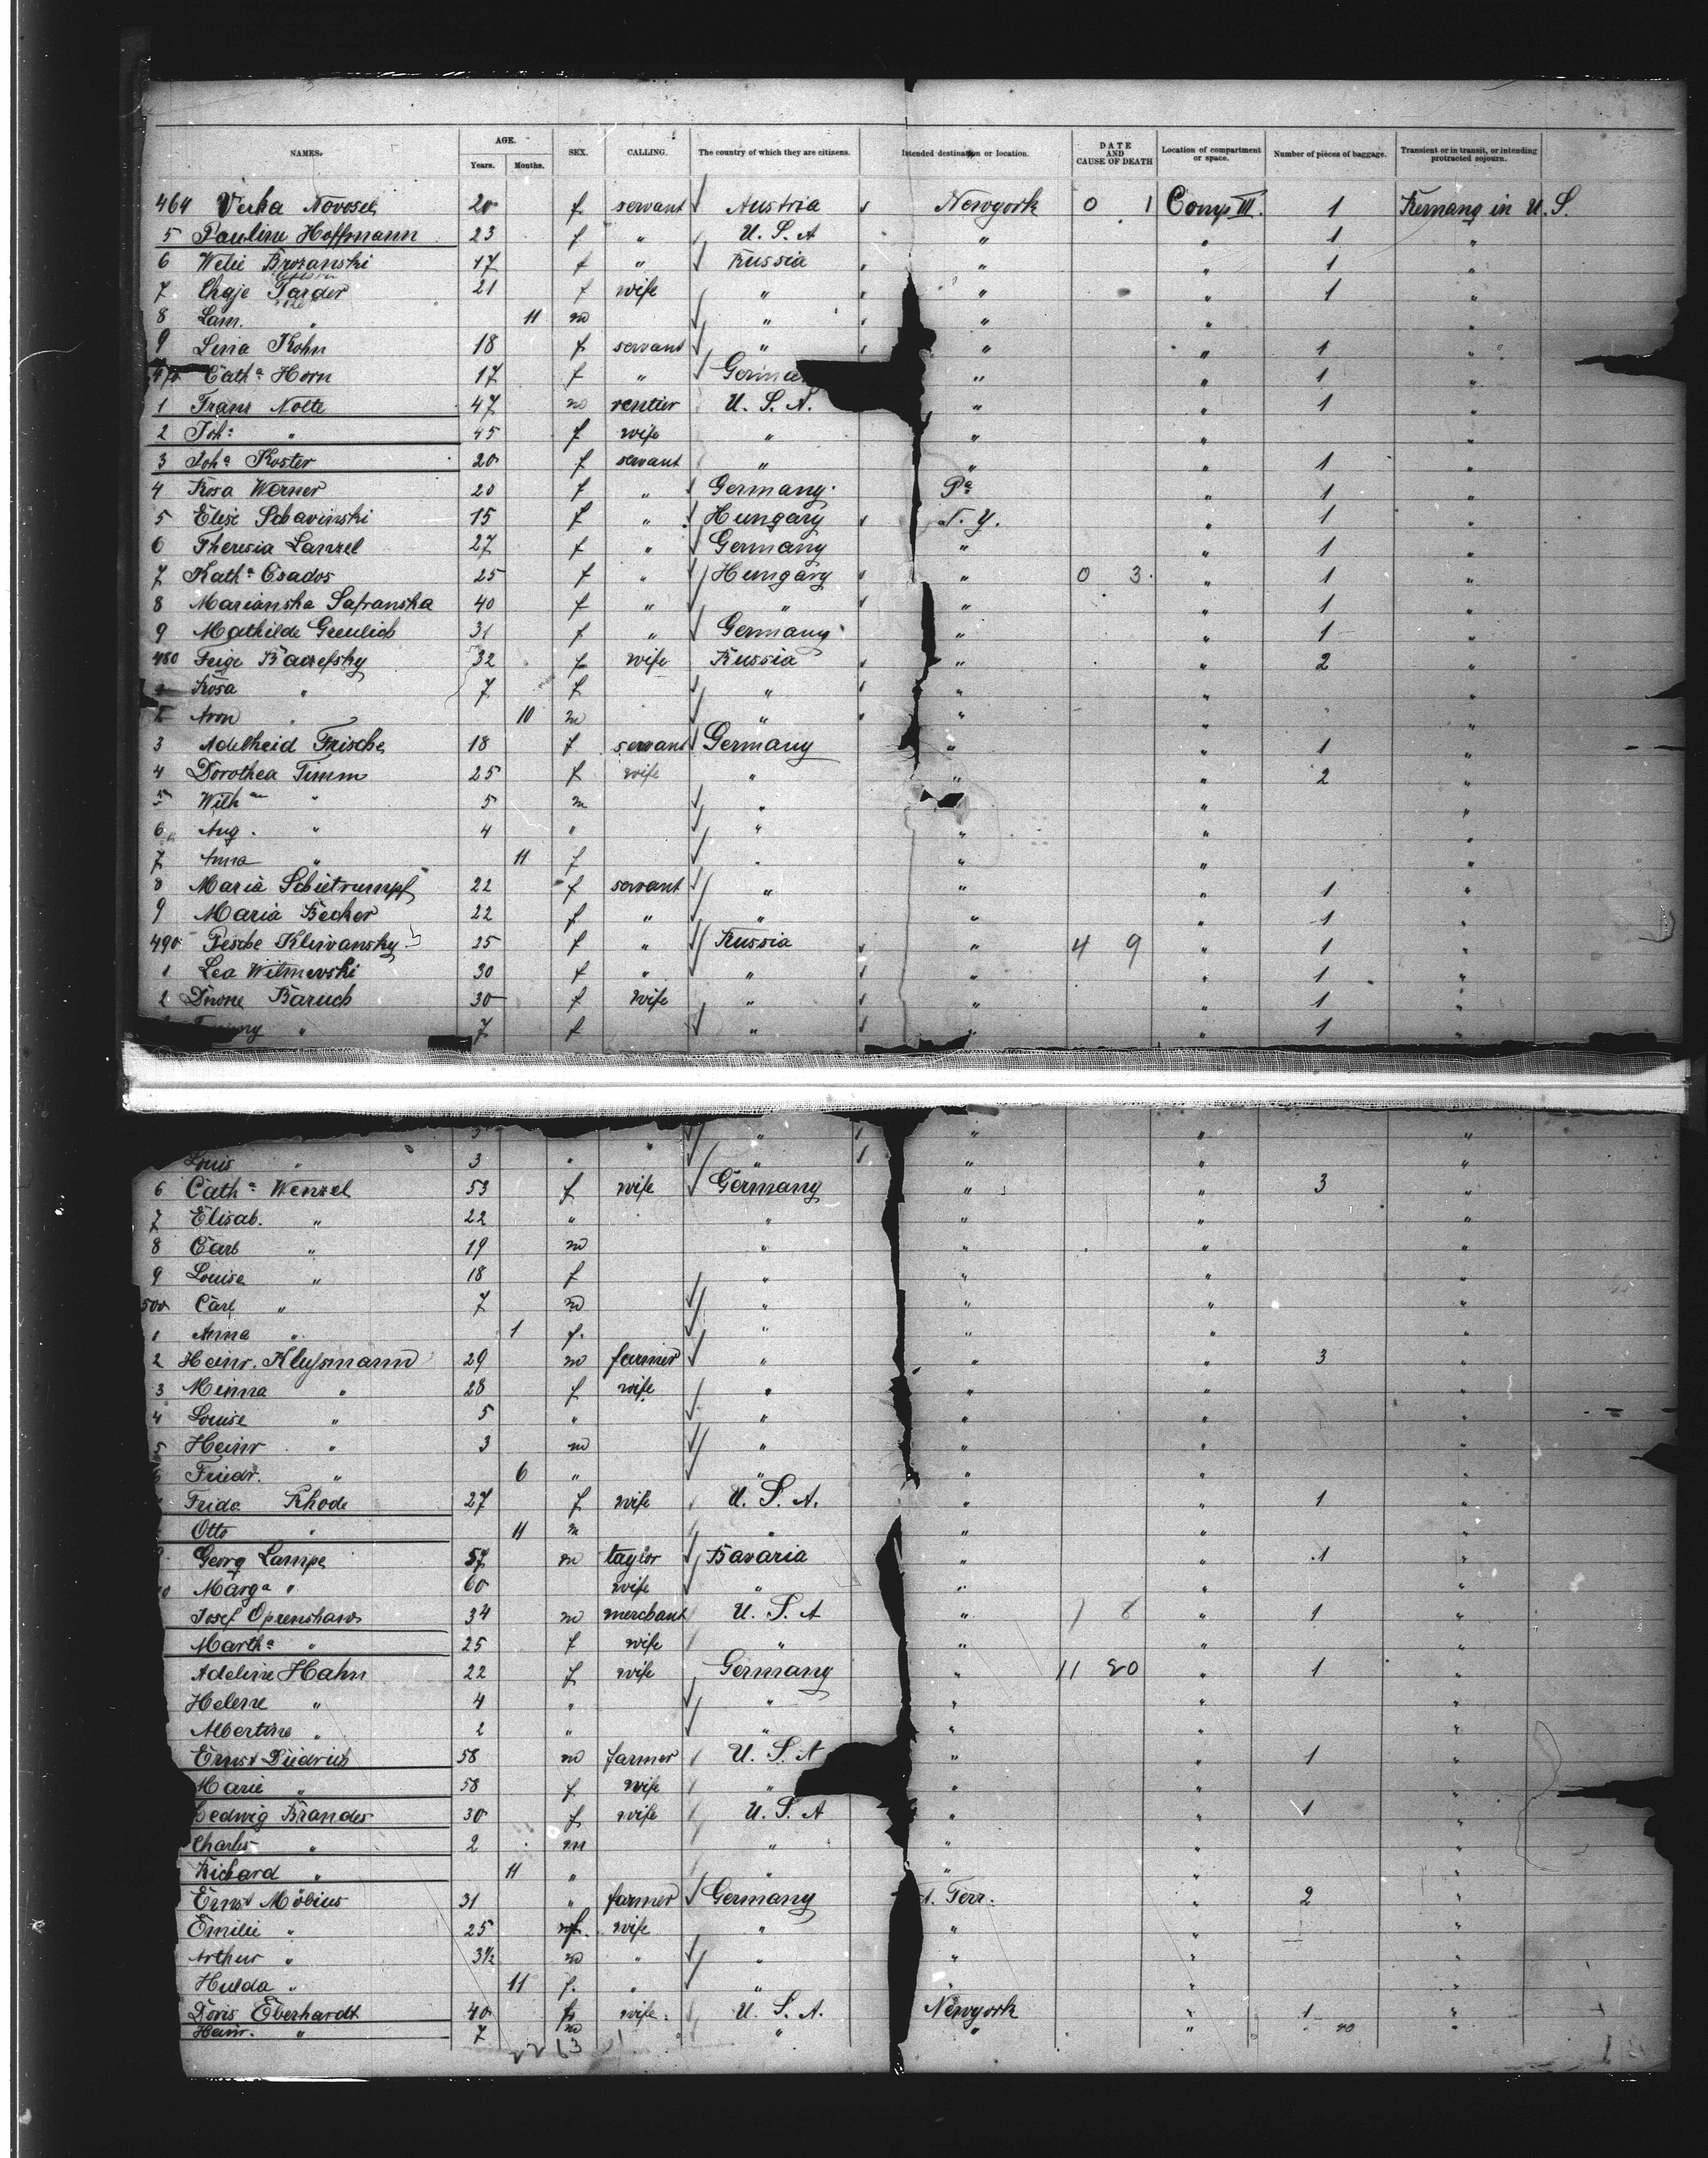 NAMES. AGE. Years. Months. SEX. CALLING. The country of which they are citizens. Intended destination or location. DATE AND CAUSE OF DEATH Location of compartment or space. Number of pieces of baggage. Transient or in transit, or intending protracted sojourn.
464 Verka Novosel 20 f servant Austria Newyork 0 1 Comp III. 1 Remang in U.S.
5 Pauline Hoffmann 23 f " U.S.A " " 1 "
6 Welie Brozanski 17 f " Russia " " 1 "
7 Chaje Tarder 21 f wife " " " 1 "
8 Lam. " 11 m " " " "
9 Lina Kohn 18 f servant " " " 1 "
470 Cath a Horn 17 f " German " " 1 "
1 Franz Nolte 47 m rentier U.S.A. " " 1 "
2 Joh a " 45 f wife " " " "
3 Joh a Koster 20 f servant " " " 1 "
4 Rosa Werner 20 f " Germany Pa " 1 "
5 Elise Schavinski 15 f " Hungary N.Y. " 1 "
6 Theresia Lanzel 27 f " Germany " " 1 "
7 Kath a Csados 25 f " Hungary " 0 3 " 1 "
8 Marianska Safranska 40 f " " " " 1 "
9 Mathilde Greulich 31 f " Germany " " 1 "
480 Feige 32 f wife Russia " " 2 "
Rosa " 7 f " " " "
Aron " 10 m " " " "
3 Adelheid Frische 18 f servant Germany " " 1 "
4 Dorothea Timm 25 f wife " " " 2 "
5 Wilh m " 5 m " " "
6 Aug. " 4 " " " " "
7 Anna " 11 f " " " "
8 Maria Schietrumpf 22 f servant " " " 1 "
9 Maria Becker 22 f " " " " 1 "
490 Pesche Kliwansky 25 f " Russia " 4 9 " 1 "
1 Lea Witmewski 30 f " " " " 1 "
2 Dwore Baruch 30 f wife " " " 1 "
" 7 f " " " 1 "
" " " "
Louis " 3 " " " " "
6 Cath a Wenzel 53 f wife Germany " " 3 "
7 Elisab. " 22 " " " " "
8 Carl " 19 m " " " "
9 Louise " 18 f " " " "
500 Carl " 7 m " " " "
1 Anna " 1 f. " " " "
2 Heinr. Klussmann 29 m farmer " " " 3 "
3 Minna " 28 f wife " " " "
4 Louise " 5 " " " " "
5 Heinr " 3 m " " " "
Friedr. " 6 " " " " "
Frida Rhode 27 f wife U.S.A. " " 1 "
Otto " 11 m " " " "
Georg Lampe 57 m taylor Bavaria " " 1 "
Marg a " 60 wife " " " "
Josef Oprenshaw 34 m merchant U.S.A " 1 " 1 "
Marth a " 25 f wife " " " "
Adeline Hahn 22 f wife Germany " 11 20 " 1 "
Helene " 4 " " " " "
Albertine " 2 " " " " "
Ernst Diedrich 58 m farmer U.S.A " " 1 "
Marie " 58 f wife " " " "
Hedwig Brandes 30 f wife U.S.A " " 1 "
Charles " 2 m " " " "
Richard " 11 " " " " "
Ernst Möbius 31 " farmer Germany Terr. " 2 "
Emilie " 25 f. wife " " " "
Arthur " 3½ m " " " " "
Hulda " 11 f. " " " " "
Doris Eberhardt 40 f wife U.S.A. Newyork " 1 "
Heinr. " 7 m " " " "
22 63